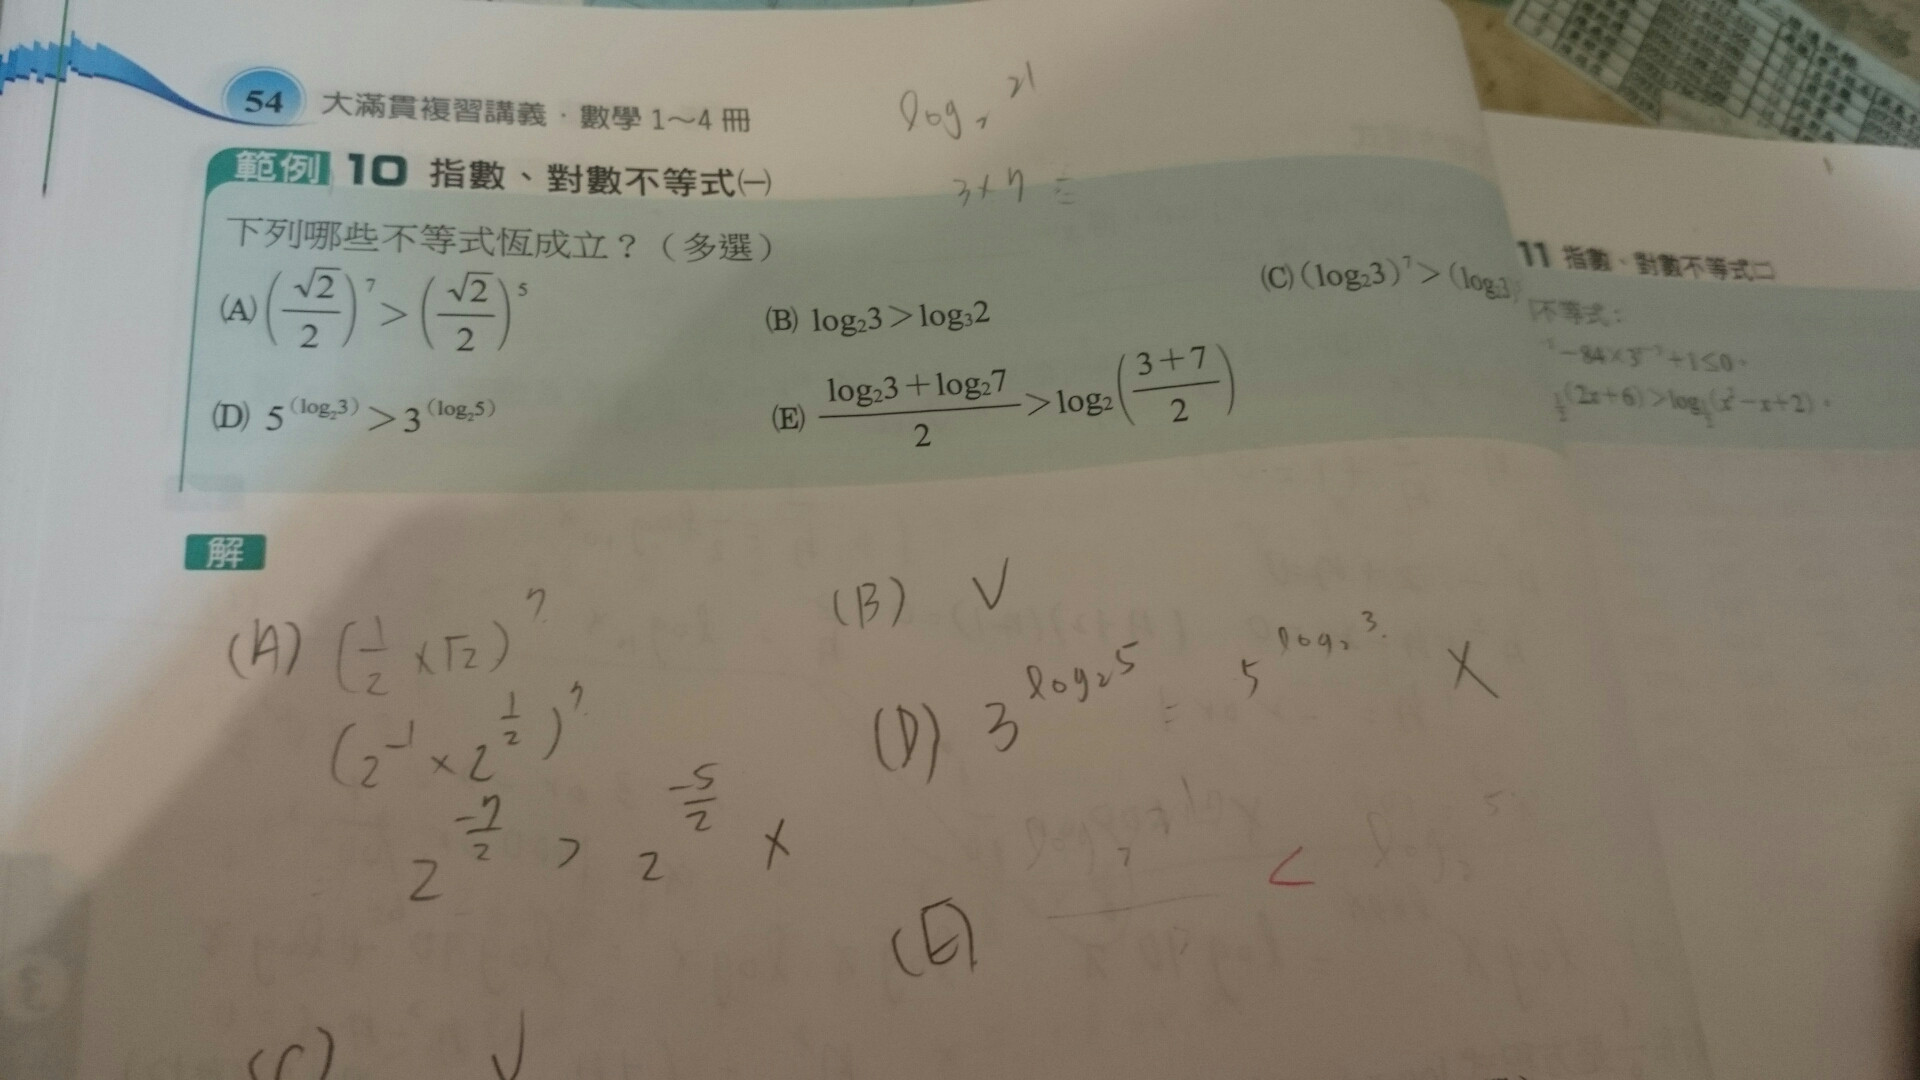 54 大滿貫複習講義．數學 1～4 冊
log₂ 21
3×7 =
範例 10 指數、對數不等式㈠
下列哪些不等式恆成立？（多選）
(A) (√2/2)⁷ > (√2/2)⁵
(B) log₂3 > log₃2
(C) (log₂3)⁷ > (log₂3)
(D) 5^(log₂3) > 3^(log₂5)
(E) (log₂3+log₂7)/2 > log₂((3+7)/2)
11 指數、對數不等式㈡
不等式：
-84×3 +1≤0。
(2x+6)>log (x²-x+2)。
解
(A) (1/2 ×√2)⁷
(2⁻¹ × 2^(1/2))⁷
2^(-7/2) > 2^(-5/2) ×
(B) ✓
(D) 3^(log₂5) 5^(log₂3) ×
(E) <
(C) ✓